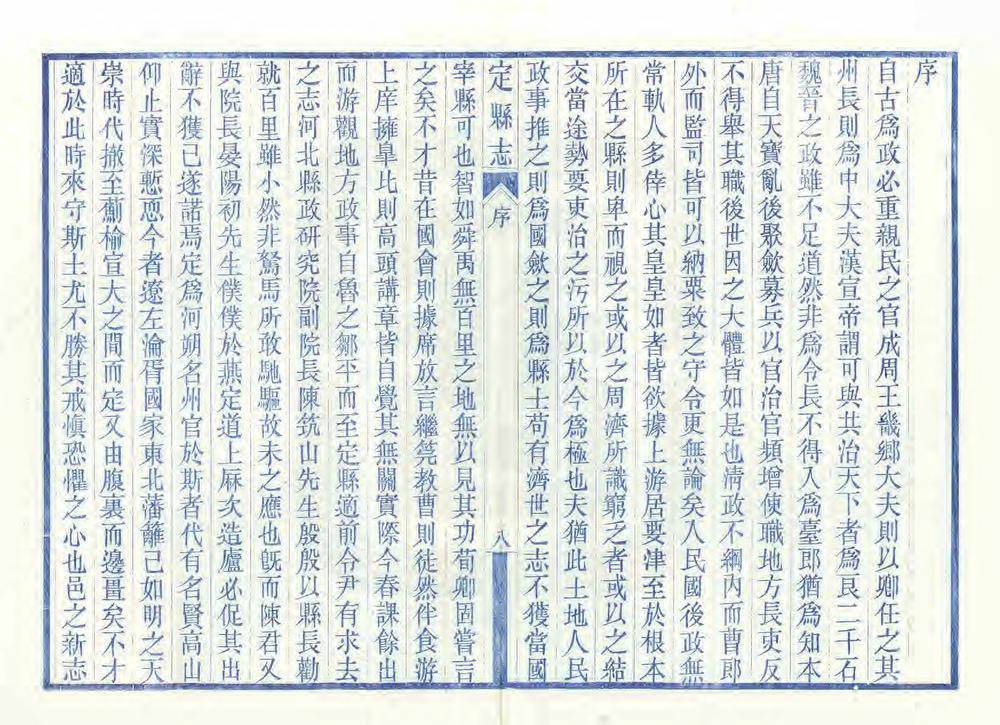 序
自古爲政必重親民之官成周王畿鄉大夫則以卿任之其
州長則爲中大夫漢宣帝謂可與共治天下者爲良二千石
魏晉之政雖不足道然非爲令長不得入爲臺郎猶爲知本
唐自天寶亂後聚歛募兵以官治官頻增使職地方長吏反
不得舉其職後世因之大體皆如是也淸政不綱內而曹郎
外而監司皆可以納粟致之守令更無論矣入民國後政無
常軌人多倖心其皇皇如者皆欲據上游居要津至於根本
所在之縣則卑而視之或以之周濟所識窮乏者或以之結
交當途勢要吏治之污所以於今爲極也夫猶此土地人民
政事推之則爲國歛之則爲縣士苟有濟世之志不獲當國
定縣志 序 八
宰縣可也智如舜禹無百里之地無以見其功荀卿固嘗言
之矣不才昔在國會則據席放言繼筦教曹則徒然伴食游
上庠擁皐比則高頭講章皆自覺其無關實際今春課餘出
而游觀地方政事自魯之鄒平而至定縣適前令尹有求去
之志河北縣政研究院副院長陳筑山先生殷殷以縣長勸
就百里雖小然非駑馬所敢馳驅故未之應也旣而陳君又
與院長晏陽初先生僕僕於燕定道上厤次造廬必促其出
辭不獲已遂諾焉定爲河朔名州官於斯者代有名賢高山
仰止實深慙恧今者遼左淪胥國家東北藩籬已如明之天
崇時代撤至薊榆宣大之間而定又由腹裏而邊畺矣不才
適於此時來守斯土尤不勝其戒愼恐懼之心也邑之新志